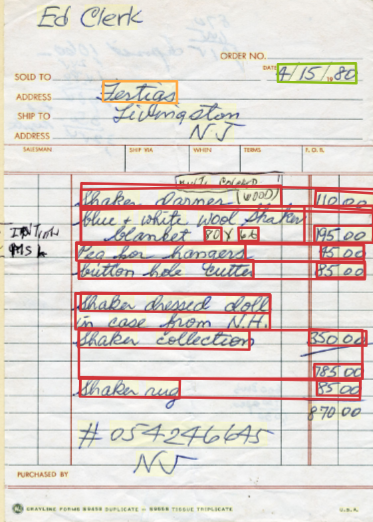 Ed Clerk
ORDER NO.
DATE 4/15/1980
SOLD TO
ADDRESS Festias
SHIP TO Livingston
ADDRESS NJ
SALESMAN SHIP VIA WHEN TERMS F.O.B.
MULTI COLORED
Shaker darner (WOOD) 110.00
blue + white wool Shaker
blanket 80 x 62 195 00
Peg for hangers 95 00
button hole cutter 85 00
Shaker dressed doll
in case from N.H.
Shaker collection 350.00
785 00
Shaker rug 85 00
870 00
# 054246645
NJ
PURCHASED BY
GRAYLINE FORMS 800SS DUPLICATE — 900SS TISSUE TRIPLICATE U.S.A.